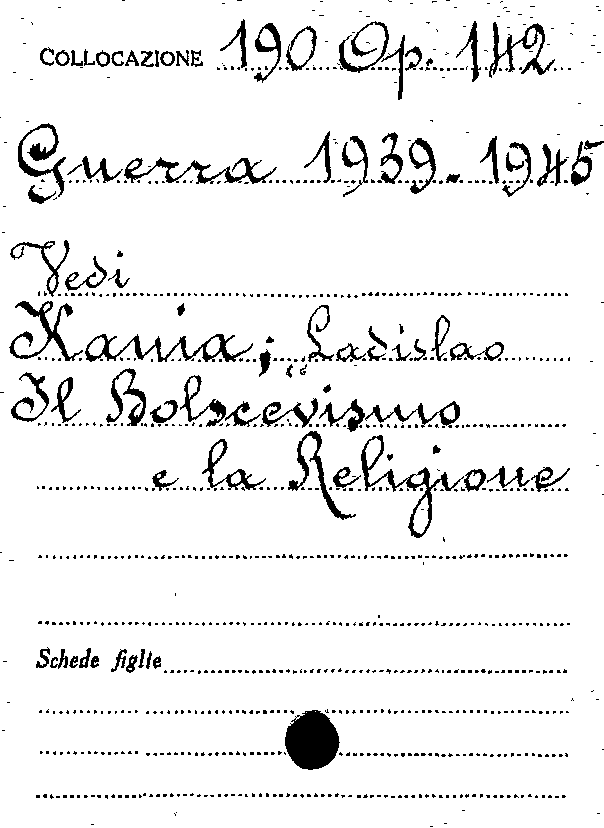 COLLOCAZIONE 190 Op. 142
Guerra 1939-1945
Vedi
Kania; Ladislao
Il Bolscevismo
e la Religione
Schede figlie